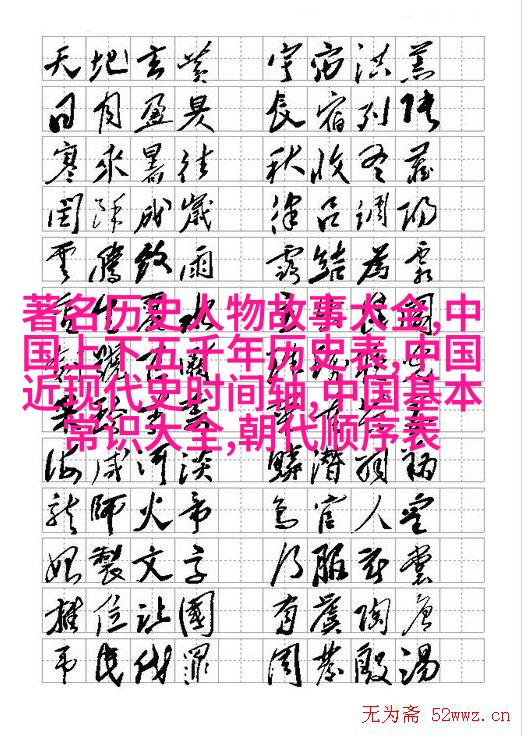 天地玄黃 宇宙洪荒
日月盈昃 辰宿列張
寒來暑往 秋收冬藏
閏餘成歲 律呂調陽
雲騰致雨 露結為霜
著名历史人物故事大全,中
国上下五千年历史表,中国
近现代史时间轴,中国基本
常识大全,朝代顺序表
海咸河淡 鱗潛羽翔
龍師火帝 鳥官人皇
始製文字 乃服衣裳
推位让國 有虞陶唐
弔民伐罪 周發殷湯
无为斋 52wwz.cn